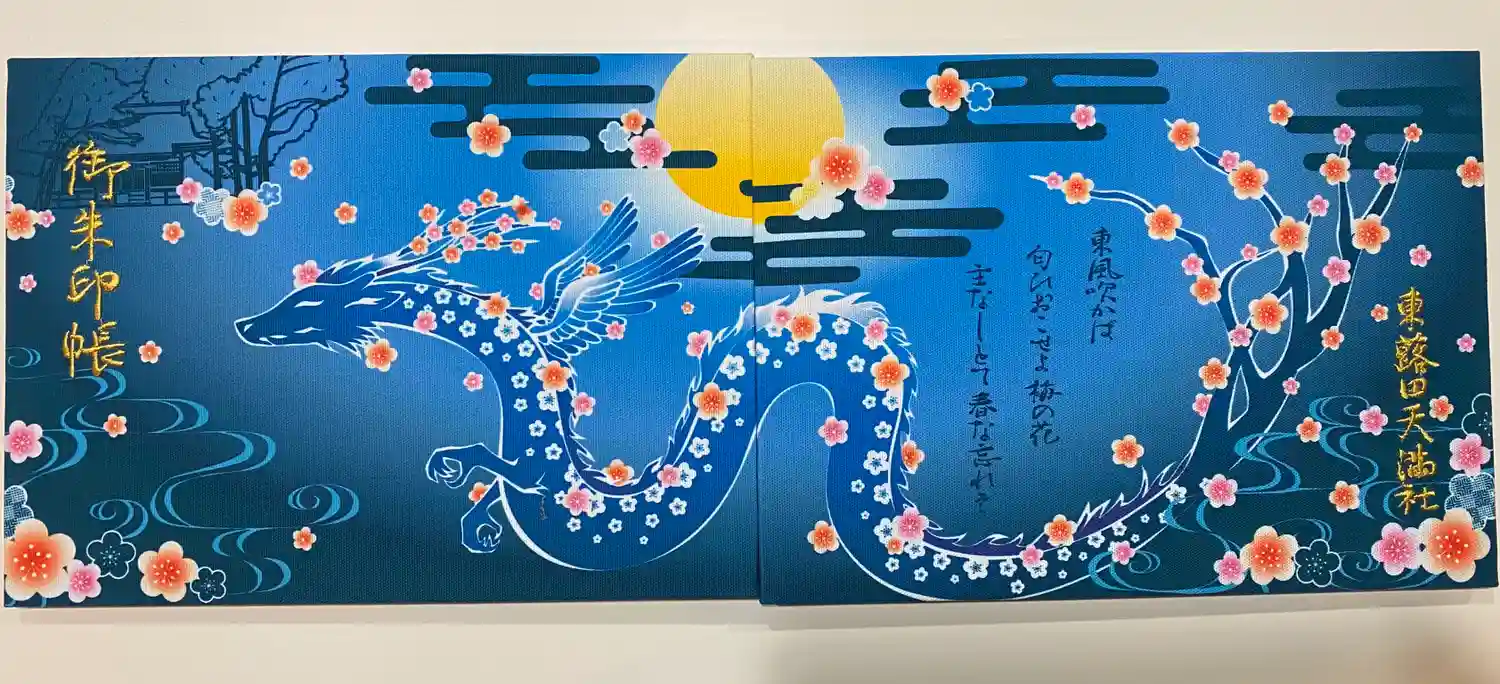 御朱印帳
東風吹かば
匂ひおこせよ梅の花
主なしとて春な忘れそ
東蕗田天満社